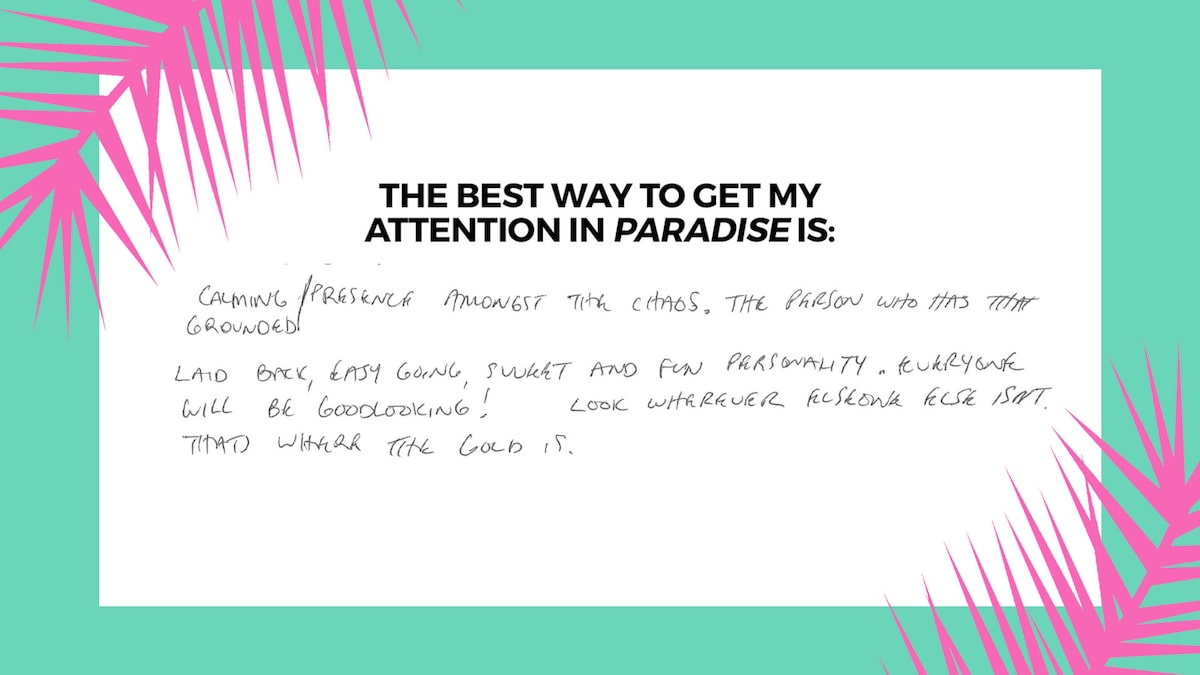 THE BEST WAY TO GET MY
ATTENTION IN PARADISE IS:
CALMING / PRESENCE AMONGST THE CHAOS. THE PERSON WHO HAS THAT
GROUNDED
LAID BACK, EASY GOING, SWEET AND FUN PERSONALITY. EVERYONE
WILL BE GOODLOOKING! LOOK WHEREVER ELSEONE ELSE ISNT.
THATS WHERE THE GOLD IS.